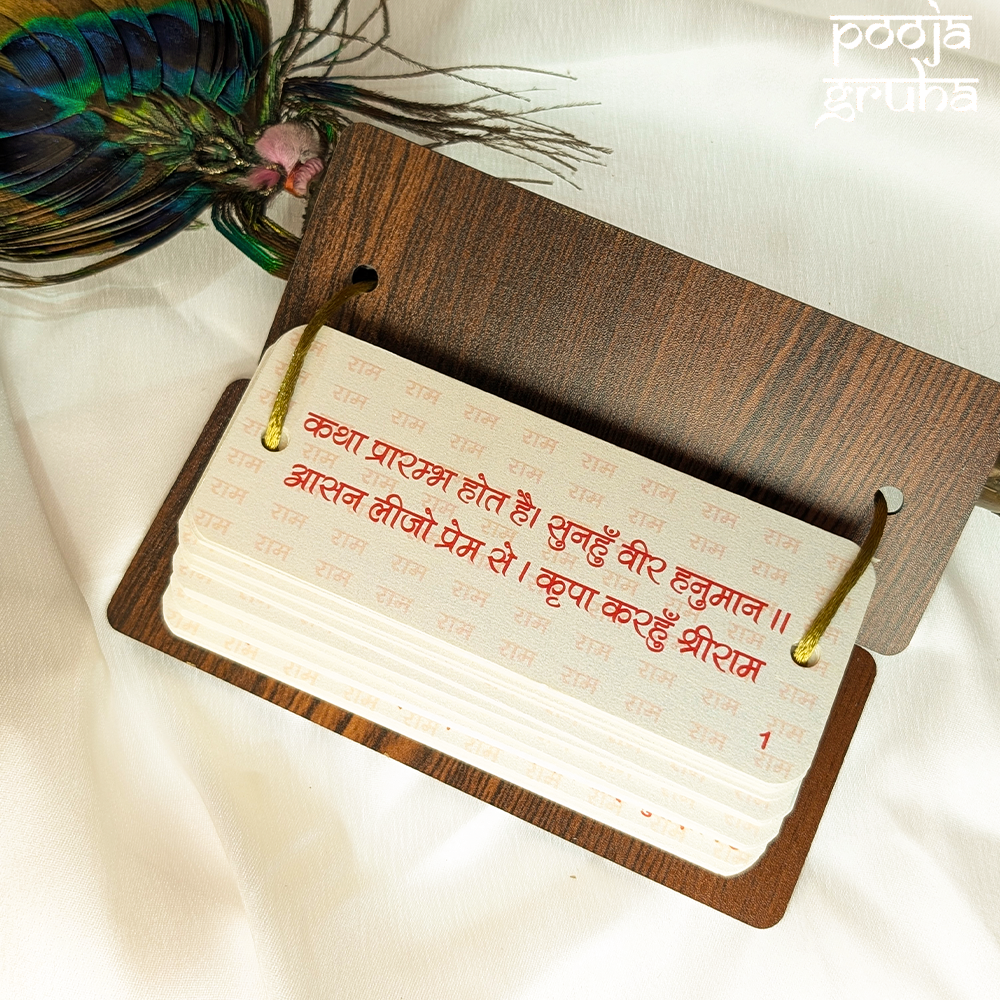 pooja
gruha
कथा प्रारम्भ होत है। सुनहुँ वीर हनुमान ।।
आसन लीजो प्रेम से । कृपा करहुँ श्रीराम
1
राम राम राम राम राम राम राम राम राम